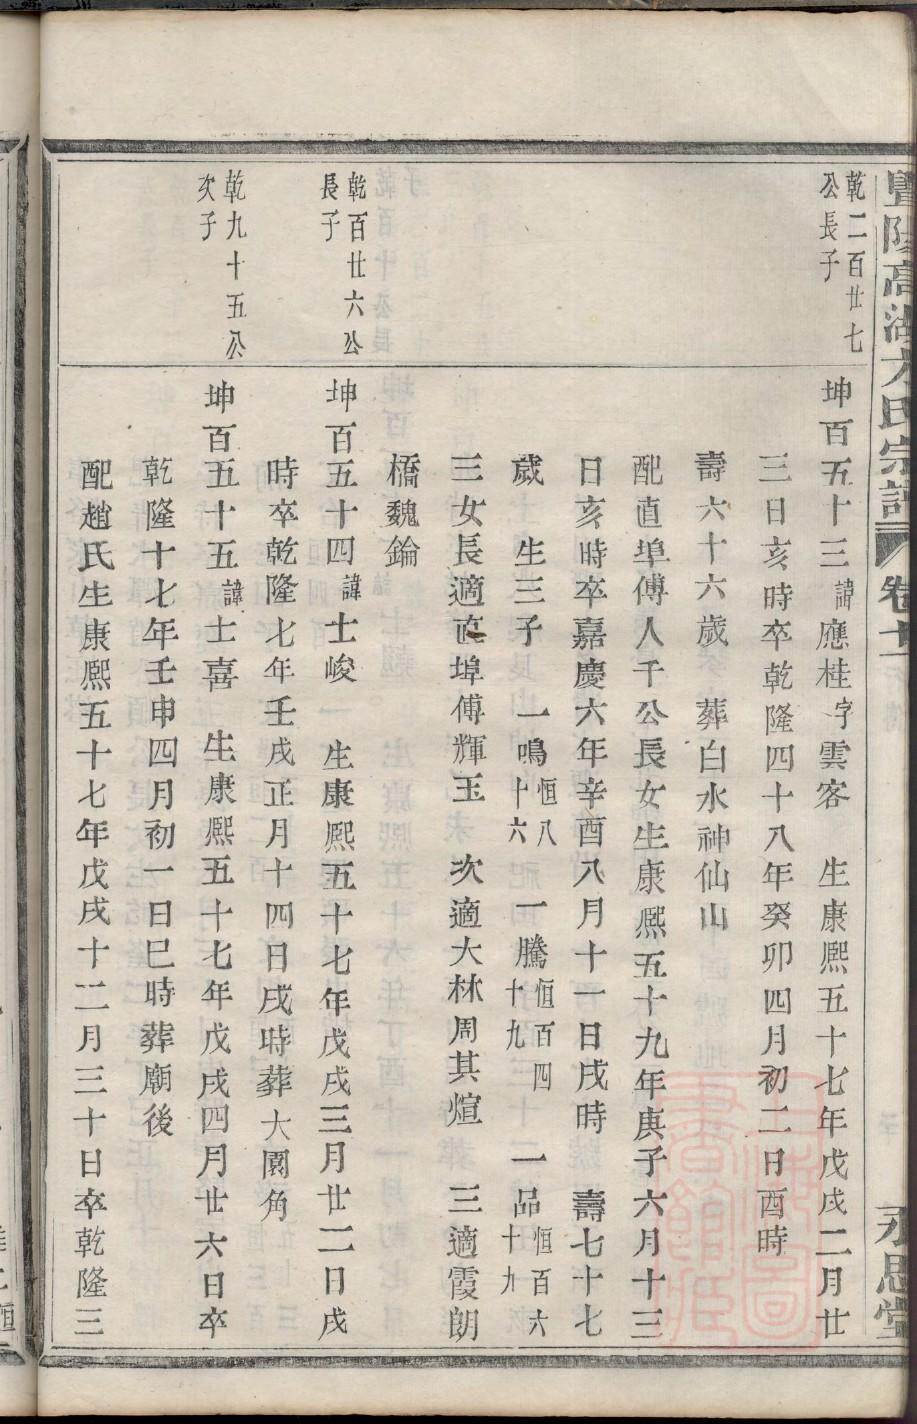 暨陽高湖方氏宗譜 卷十 永思堂
乾二百廿七
公長子
坤百五十三諱應桂字雲客 生康熙五十七年戊戌二月廿
三日亥時卒乾隆四十八年癸卯四月初二日酉時
壽六十六歲 葬白水神仙山
配直埠傅人千公長女生康熙五十九年庚子六月十三
日亥時卒嘉慶六年辛酉八月十一日戌時 壽七十七
歲 生三子 一鳴恒八十六 一騰恒百四十九 一品恒百六十九
三女長適直埠傅輝玉 次適大林周其煊 三適霞朗
橋魏鑰
乾百廿六公
長子
坤百五十四諱士峻 生康熙五十七年戊戌三月廿二日戌
時卒乾隆七年壬戌正月十四日戌時葬大園角
乾九十五公
次子
坤百五十五諱士喜 生康熙五十七年戊戌四月廿六日卒
乾隆十七年壬申四月初一日巳時葬廟後
配趙氏生康熙五十七年戊戌十二月三十日卒乾隆三